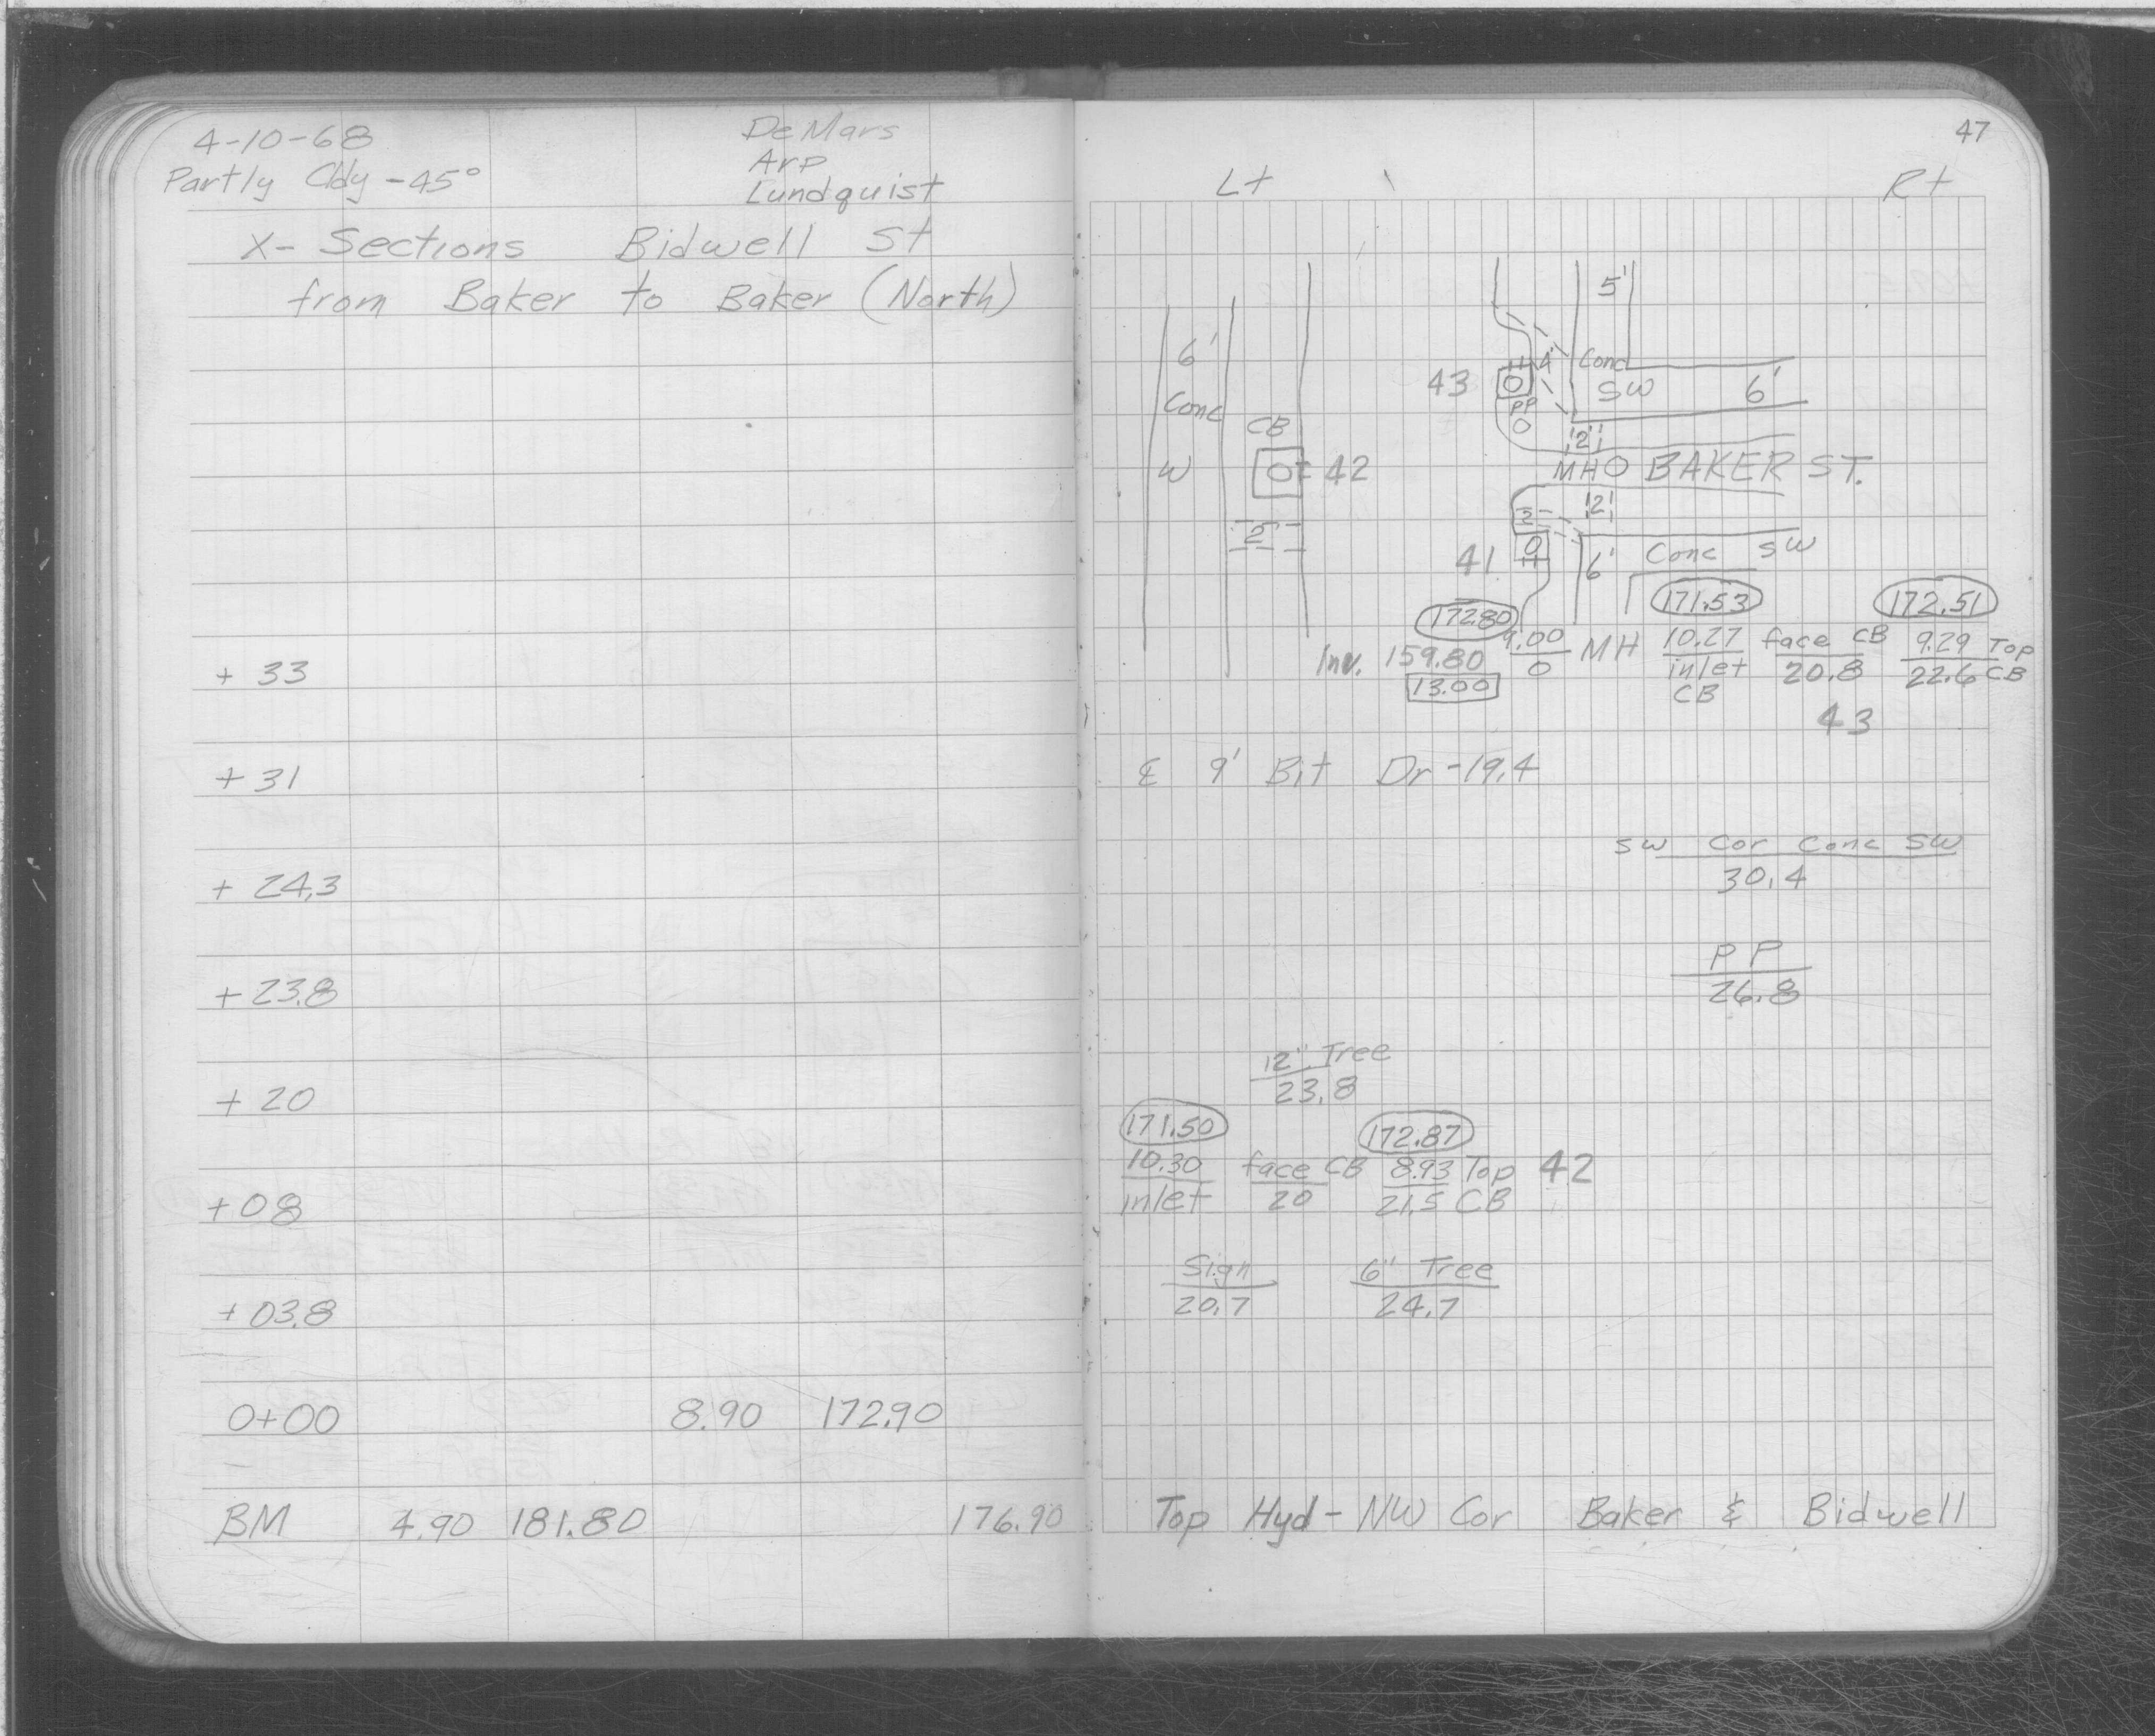 4-10-68
Partly Cldy -45°
DeMars
Arp
Lundquist
X- Sections Bidwell St
from Baker to Baker (North)
+ 33
+ 31
+ 24.3
+ 23.8
+ 20
+ 08
+ 03.8
0+00 8.90 172.90
BM 4.90 181.80 176.90
47
Lt Rt
5'
6'
Conc
W
CB
42
2'
43
4'
Conc
SW 6'
PP
2'
MH BAKER ST.
2'
2
41
6' Conc SW
172.80 171.53 172.51
Inv. 159.80 9.00 MH 10.27 face CB 9.29 Top
13.00 0 inlet 20.8 22.6 CB
CB
43
₠ 9' Bit Dr -19.4
SW Cor Conc SW
30.4
PP
26.8
12" Tree
23.8
171.50 172.87
10.30 face CB 8.93 Top 42
inlet 20 21.5 CB
Sign 6" Tree
20.7 24.7
Top Hyd - NW Cor Baker & Bidwell